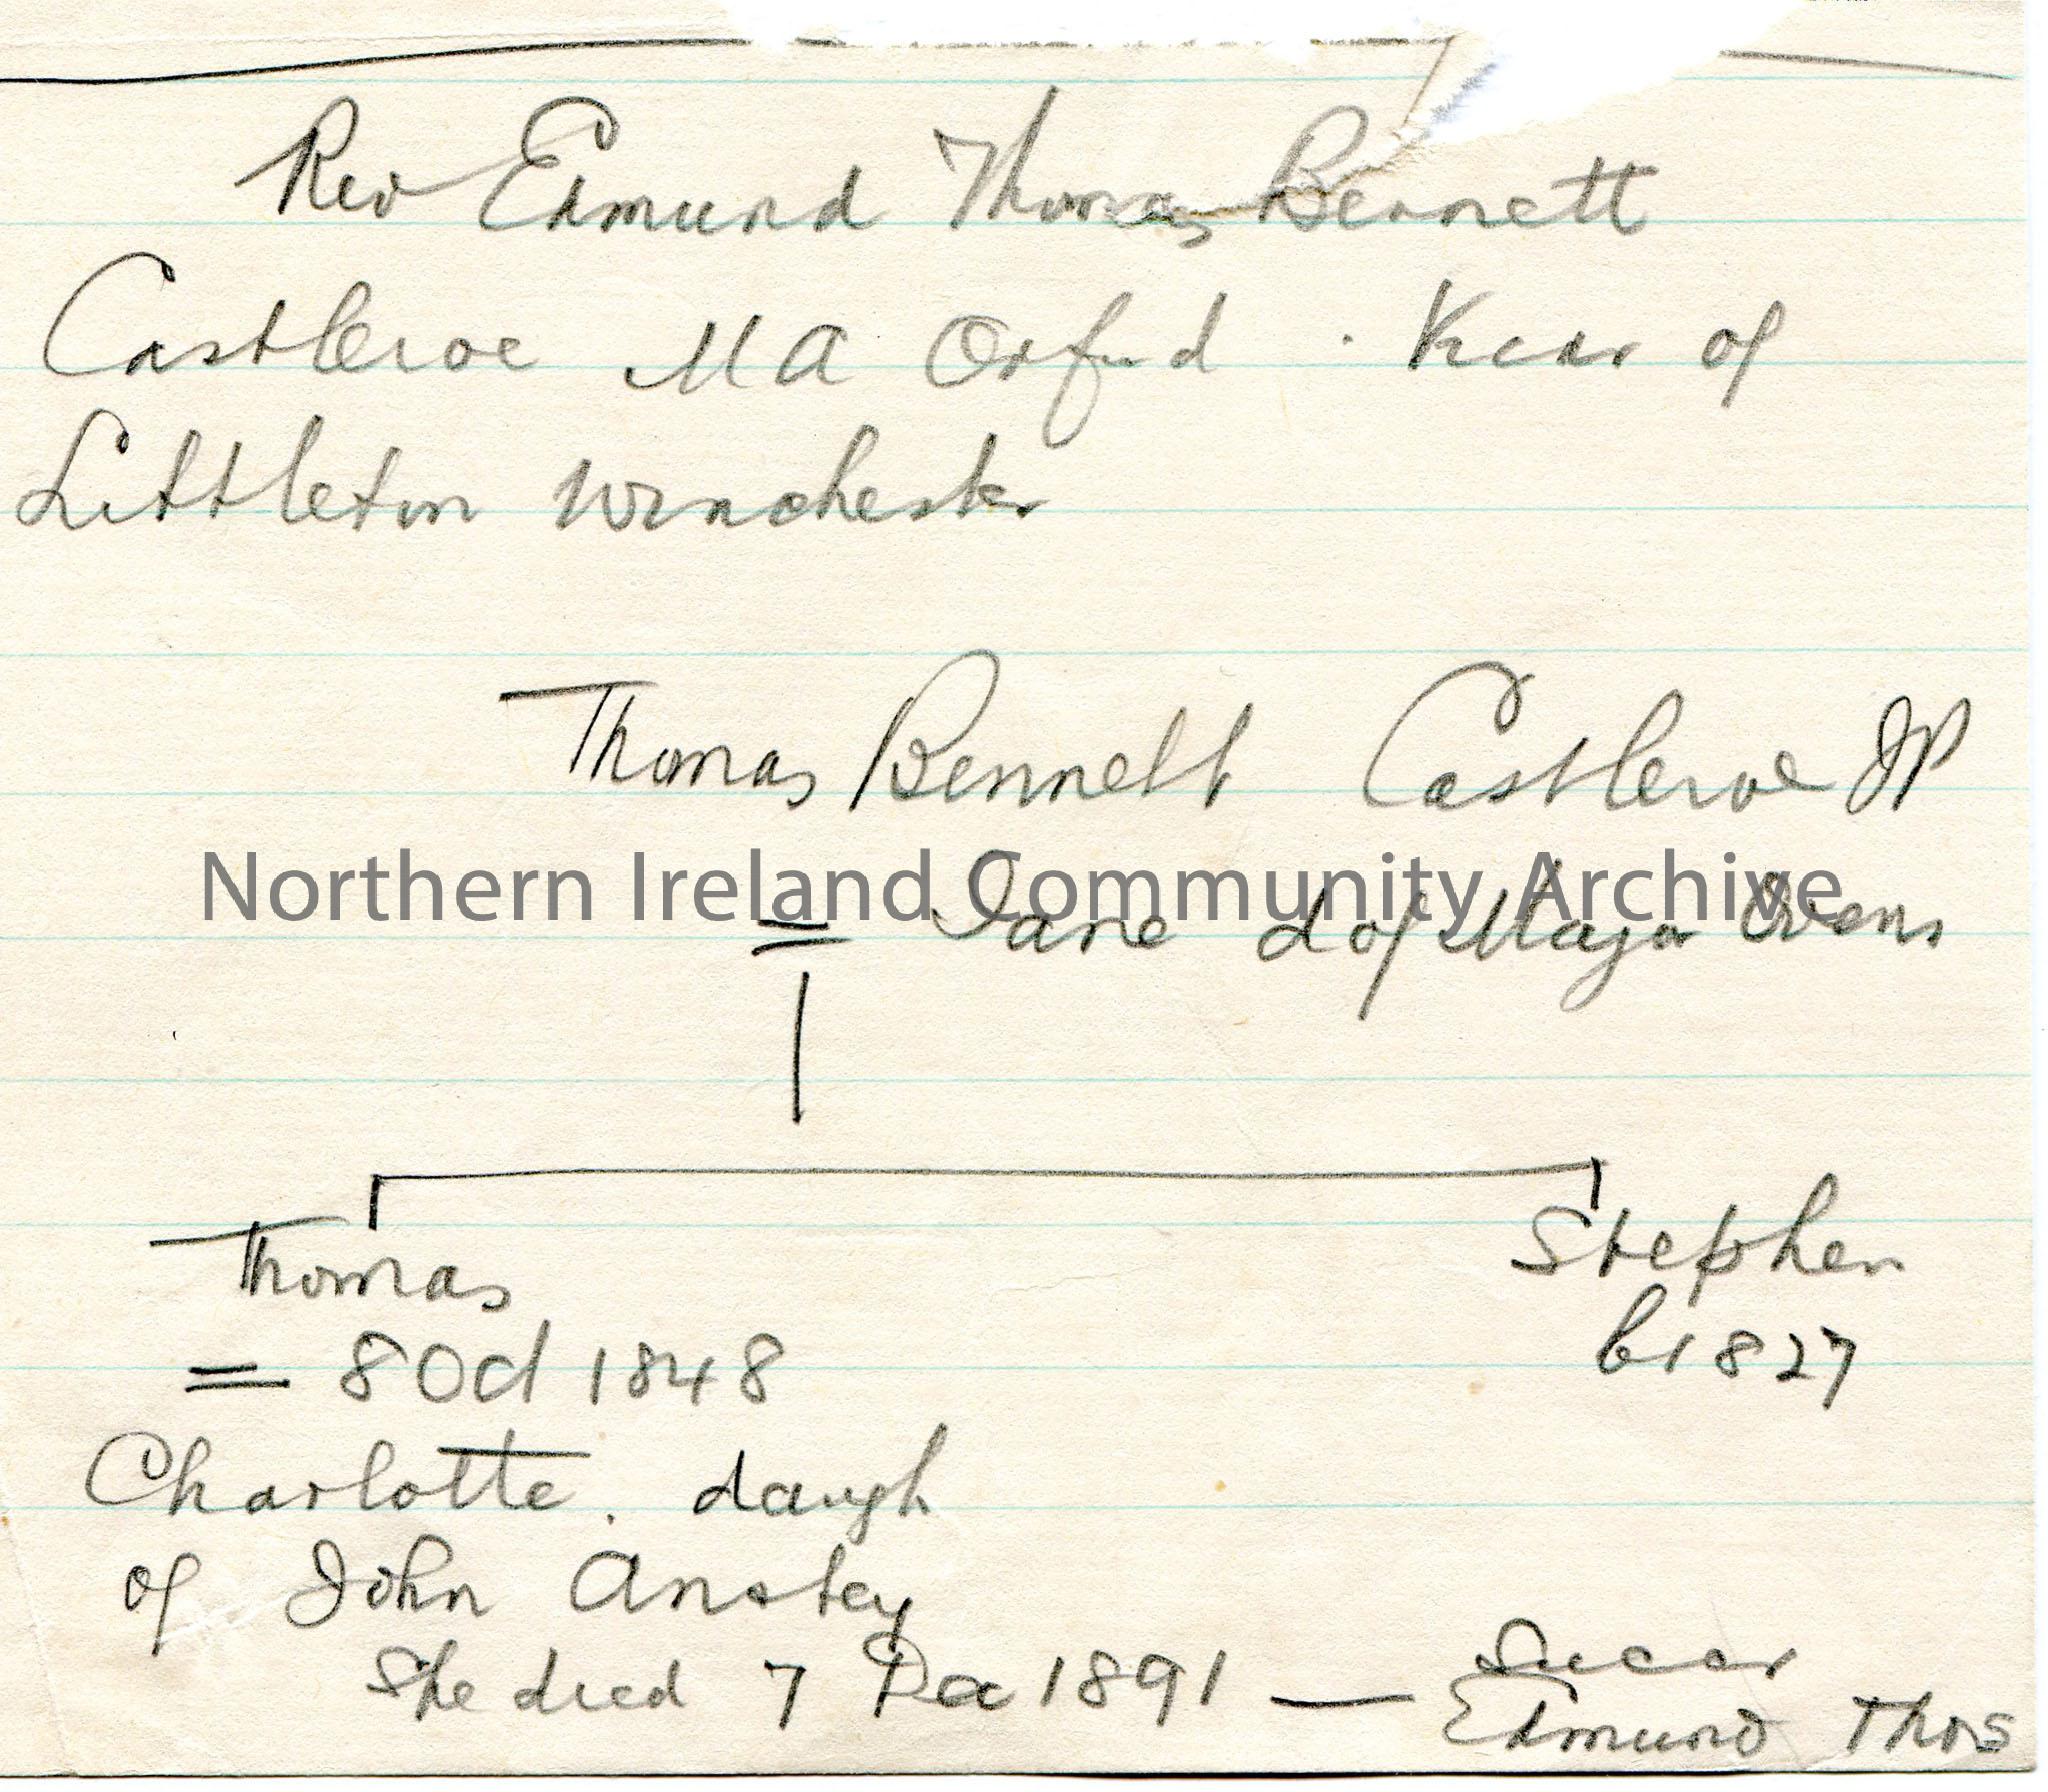 Rev Edmund Thomas Bennett
Castleroe MA Oxford . Vicar of
Littleton Winchester
Thomas Bennett Castleroe JP
Northern Ireland Community Archive
= Jane d of Major Owens
Thomas
Stephen
= 8 Oct 1848
b 1827
Charlotte. daugh
of John Anstey
She died 7 Dec 1891 —
Edmund Thos